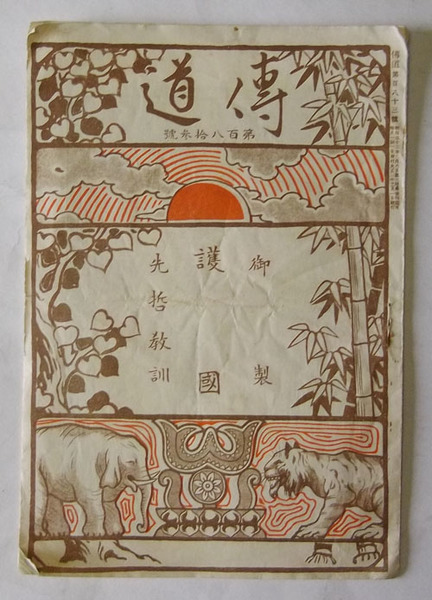 傳道
第百八拾參號
御製
護國
先哲教訓
傳道第百八十三號